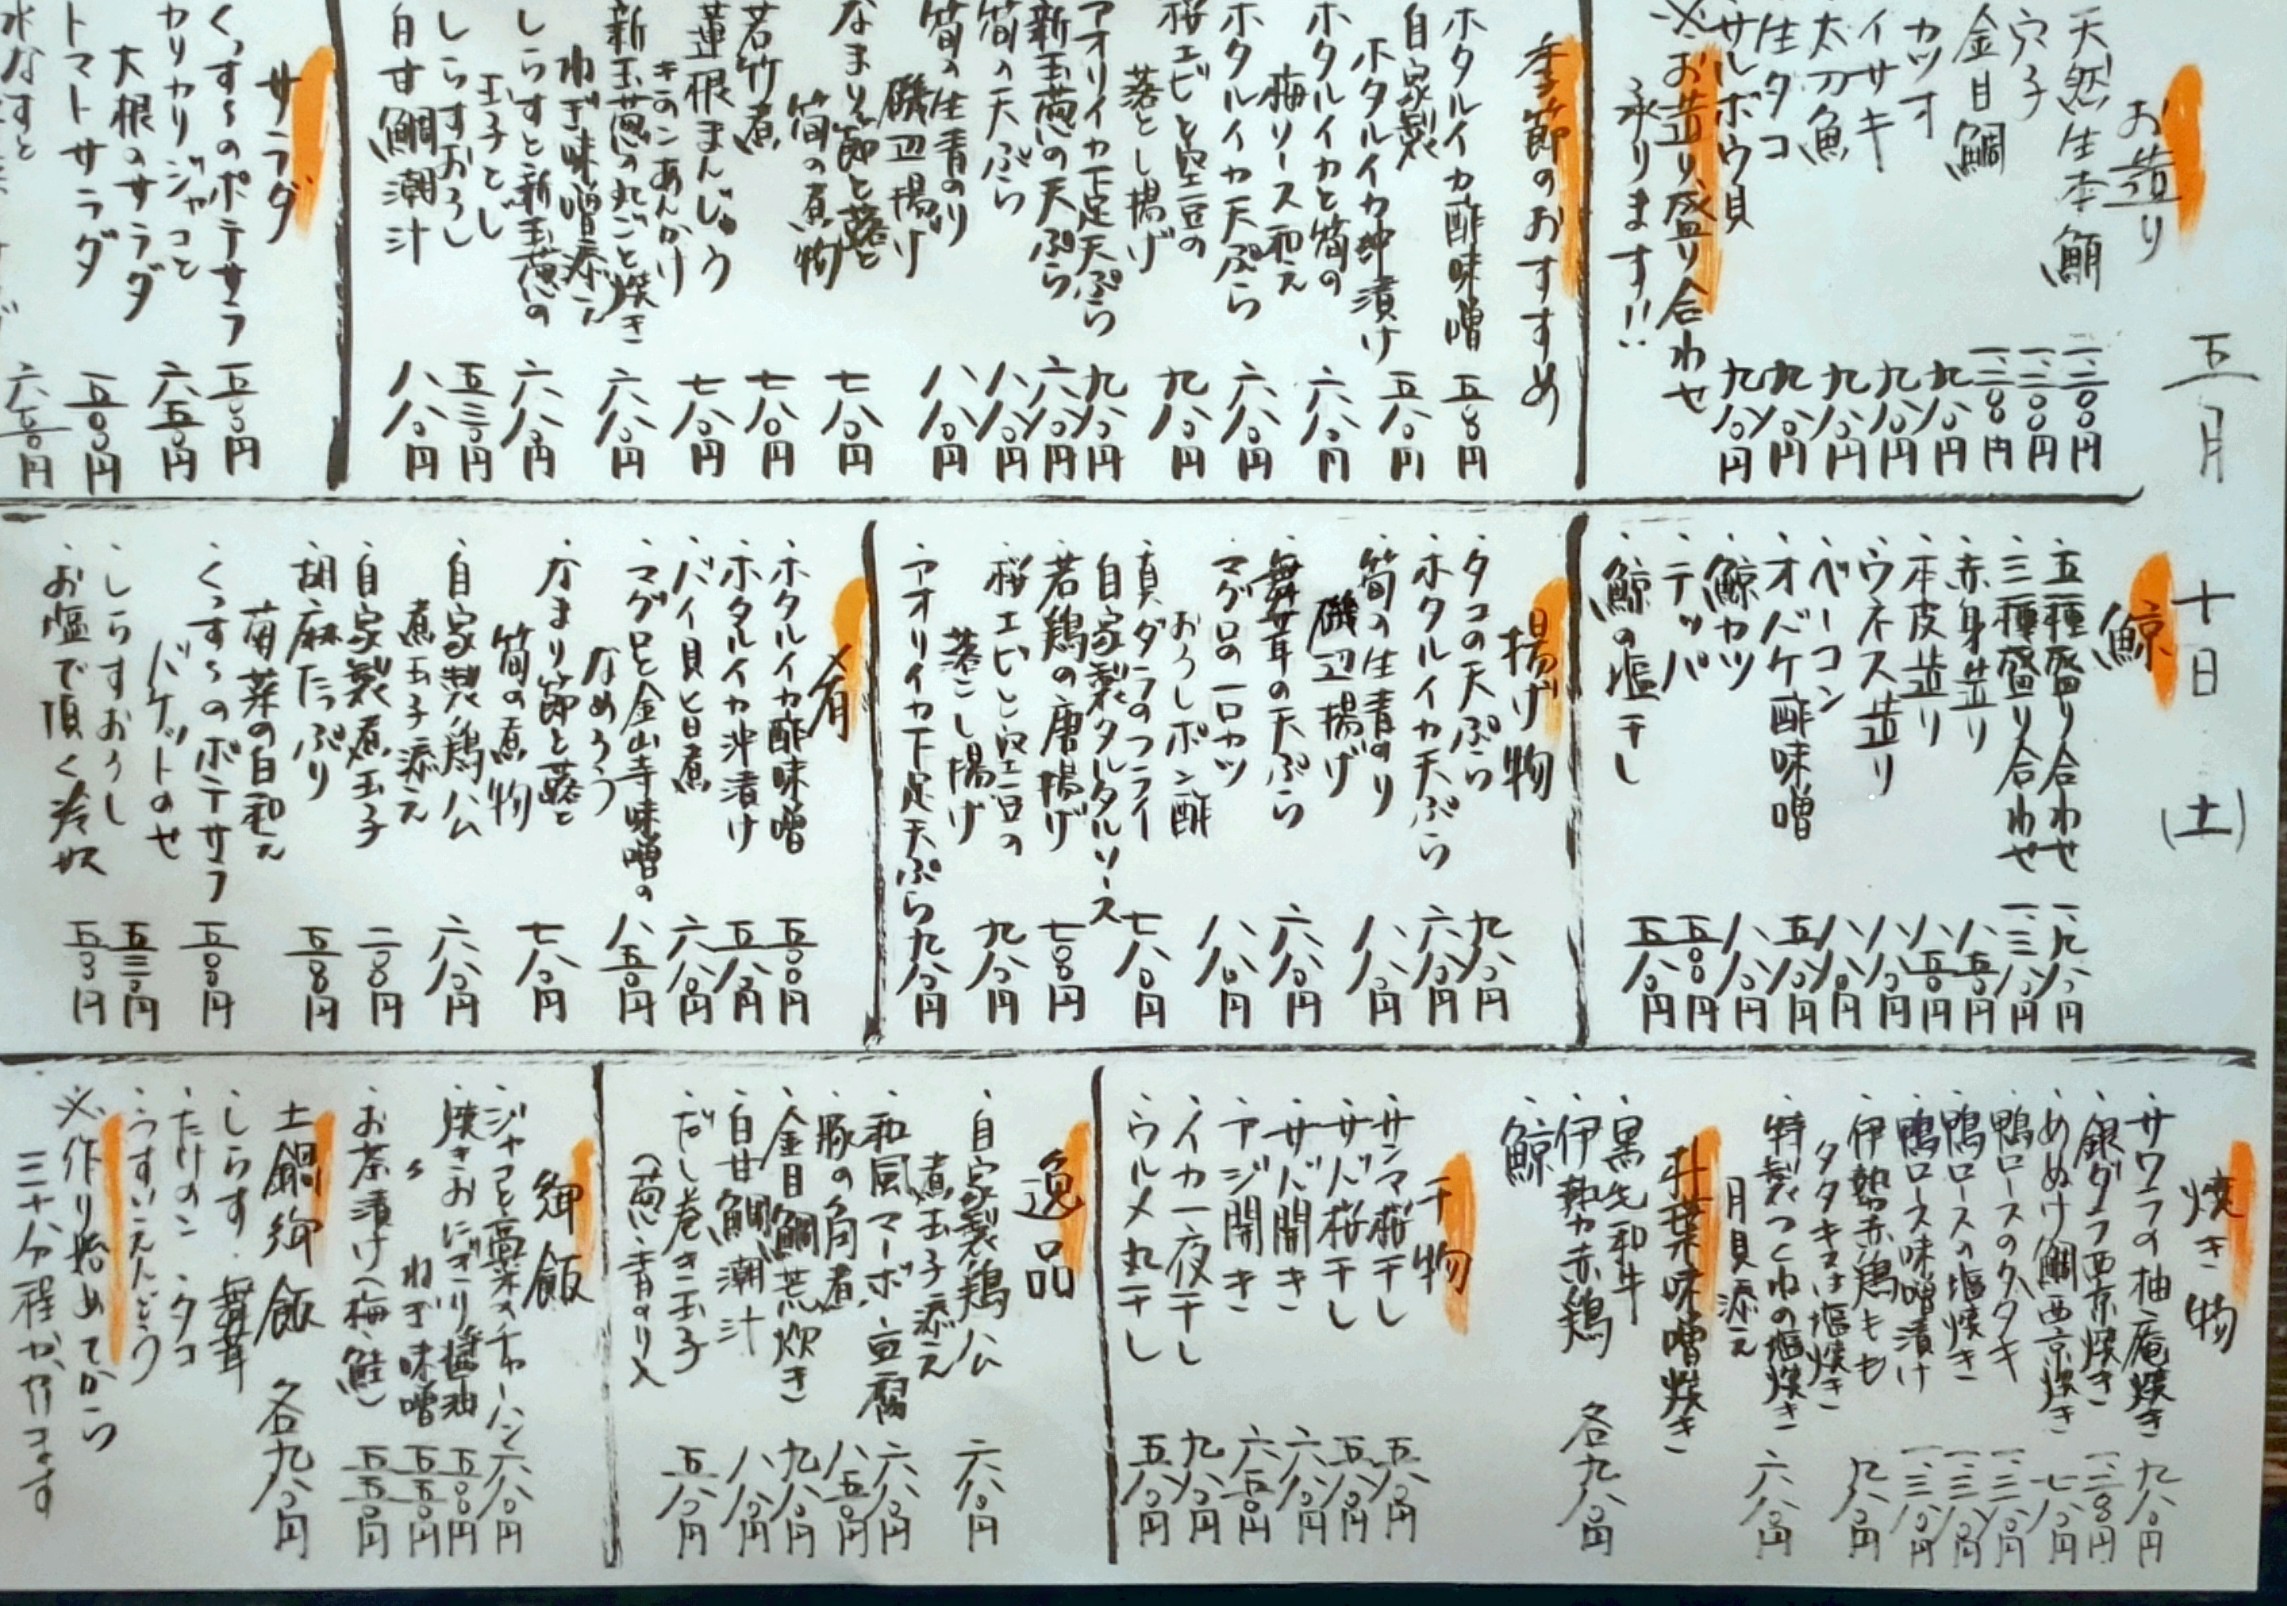 五月十日(土)
お造り
天然生本鮪 一、二〇〇円
穴子 一、二〇〇円
金目鯛 一、二〇〇円
カツオ 九八〇円
イサキ 九八〇円
太刀魚 九八〇円
生タコ 九八〇円
サルボウ貝 九八〇円
※お造り盛り合わせ
承ります!!
季節のおすすめ
ホタルイカ酢味噌 五〇〇円
自家製
ホタルイカ沖漬け 五八〇円
ホタルイカと筍の
梅ソース和え 六八〇円
ホタルイカ天ぷら 六八〇円
桜エビと空豆の
落とし揚げ 九八〇円
アオリイカ下足天ぷら 九八〇円
新玉葱の天ぷら 六八〇円
筍の天ぷら 八八〇円
筍の生青のり
磯辺揚げ 八八〇円
なまり節と蕗と
筍の煮物 七八〇円
若竹煮 七八〇円
蓮根まんじゅう
きのこあんかけ 七八〇円
新玉葱の丸ごと焼き
ねぎ味噌添え 六八〇円
しらすと新玉葱の
玉子とじ 六八〇円
しらすおろし 五三〇円
白甘鯛潮汁 八八〇円
サラダ
くっす〜のポテサラ 五〇〇円
カリカリジャコと
大根のサラダ 六五〇円
トマトサラダ 五〇〇円
水なすと
六五〇円
鯨
・五種盛り合わせ 一、九八〇円
・三種盛り合わせ 一、三八〇円
・赤身造り 八五〇円
・本皮造り 八五〇円
・ウネス造り 八八〇円
・ベーコン 八八〇円
・オバケ酢味噌 五八〇円
・鯨カツ 八八〇円
・テッパ 五〇〇円
・鯨の塩干し 五八〇円
揚げ物
・タコの天ぷら 九八〇円
・ホタルイカ天ぷら 六八〇円
・筍の生青のり
磯辺揚げ 八八〇円
・舞茸の天ぷら 六八〇円
・マグロの一口カツ
おろしポン酢 八八〇円
・真ダラのフライ
自家製タルタルソース 七八〇円
・若鶏の唐揚げ 七〇〇円
・桜エビと空豆の
落とし揚げ 九八〇円
・アオリイカ下足天ぷら 九八〇円
肴
・ホタルイカ酢味噌 五〇〇円
・ホタルイカ沖漬け 五八〇円
・バイ貝旨煮 六八〇円
・マグロと金山寺味噌の
なめろう 八五〇円
・なまり節と蕗と
筍の煮物 七八〇円
・自家製鶏ハム
煮玉子添え 六八〇円
・自家製煮玉子 二〇〇円
・胡麻たっぷり
菊菜の白和え 五〇〇円
・くっす〜のポテサラ
バケットのせ 五〇〇円
・しらすおろし 五三〇円
・お塩で頂く冷奴 五〇〇円
焼き物
・サワラの柚庵焼き 九八〇円
・銀ダラ西京焼き 一、二〇〇円
・めぬけ鯛西京焼き 七八〇円
・鴨ロースのタタキ 一、三八〇円
・鴨ロースの塩焼き 一、三八〇円
・鴨ロース味噌漬け 一、三八〇円
・伊勢赤鶏もも
タタキ又は塩焼き 九八〇円
・特製つくねの塩焼き
月見添え 六八〇円
朴葉味噌焼き
・黒毛和牛
・伊勢赤鶏
・鯨
各九八〇円
干物
・サンマ桜干し 五八〇円
・サバ桜干し 五八〇円
・サバ開き 六八〇円
・アジ開き 六五〇円
・イカ一夜干し 九八〇円
・ウルメ丸干し 五八〇円
逸品
・自家製鶏ハム
煮玉子添え 六八〇円
・和風マーボー豆腐 六八〇円
・豚の角煮 八五〇円
・金目鯛荒炊き 九八〇円
・白甘鯛潮汁 八八〇円
・だし巻き玉子
(葱・青のり入) 五八〇円
御飯
・ジャコと高菜のチャーハン 六八〇円
・焼きおにぎり醤油 五〇〇円
〃 ねぎ味噌 五五〇円
・お茶漬け(梅、鮭) 五五〇円
土鍋御飯 各九八〇円
・しらす・舞茸
・たけのこ・タコ
・うすいえんどう
※作り始めてから
三十分程かかります